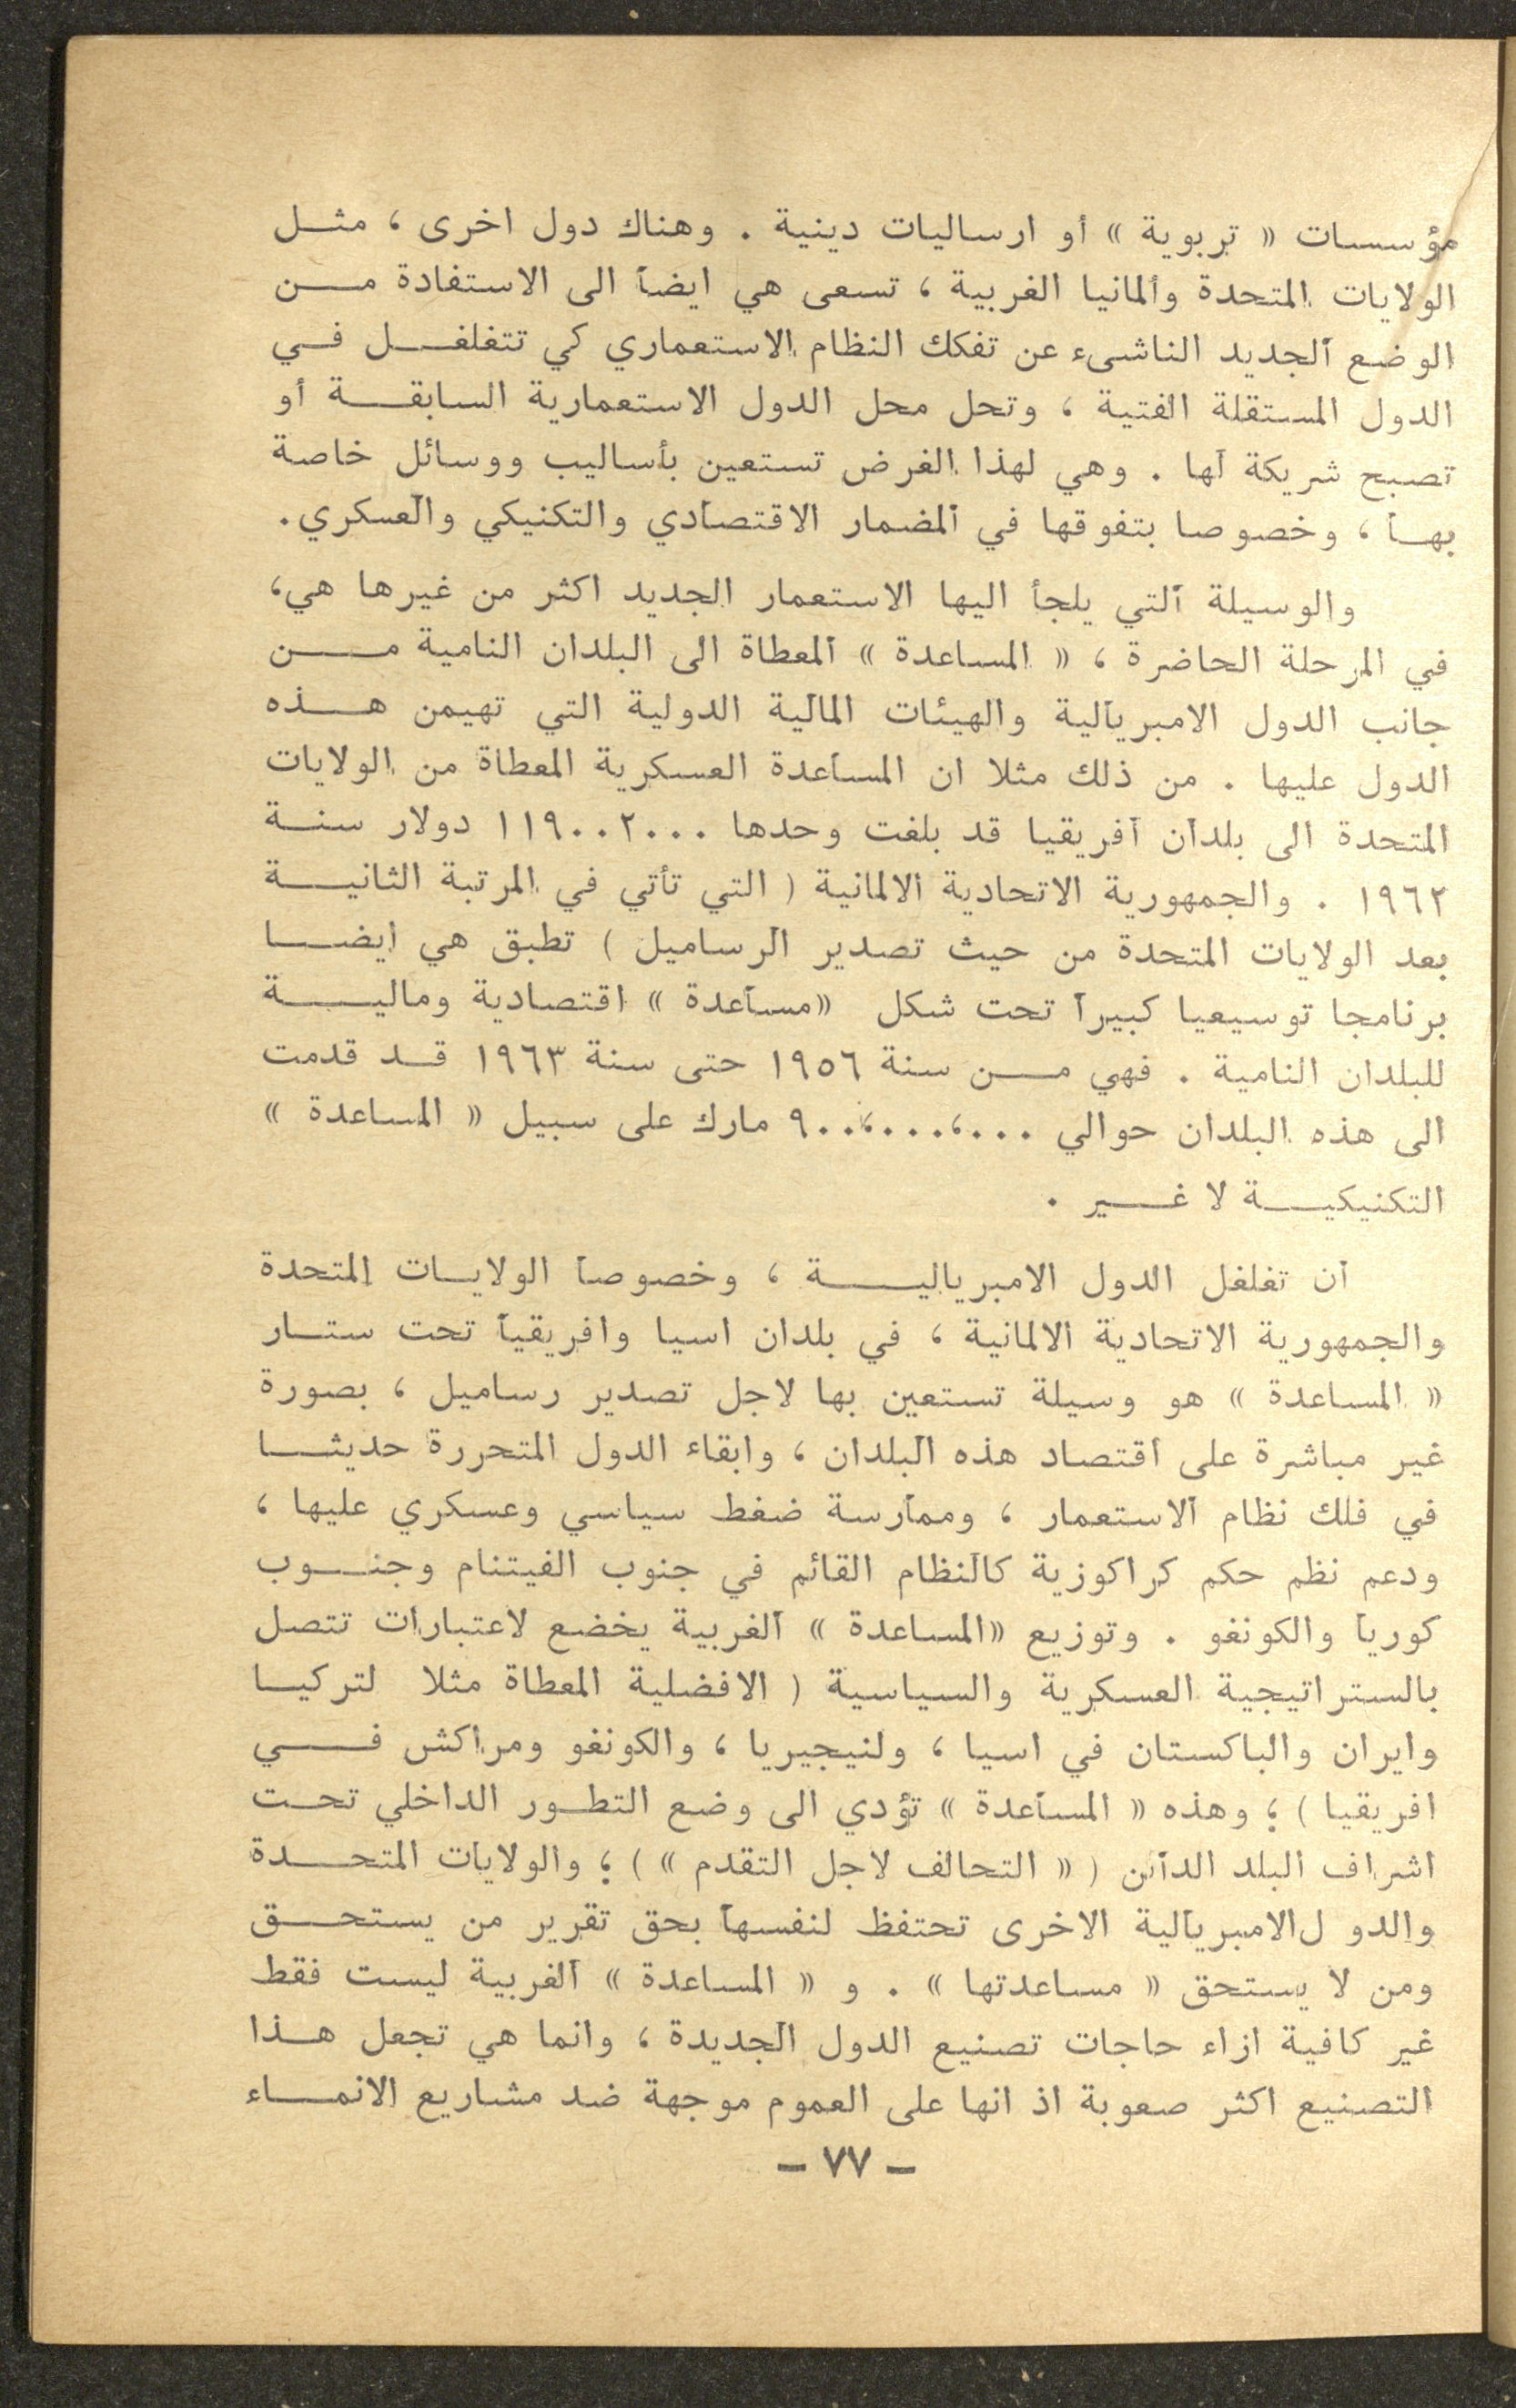 مؤسسات « تربوية » أو ارساليات دينية . وهناك دول اخرى ، مثل
الولايات المتحدة وألمانيا الغربية ، تسعى هي ايضاً الى الاستفادة من
الوضع الجديد الناشىء عن تفكك النظام الاستعماري كي تتغلغل في
الدول المستقلة الفتية ، وتحل محل الدول الاستعمارية السابقة أو
تصبح شريكة لها . وهي لهذا الغرض تستعين بأساليب ووسائل خاصة
بها ، وخصوصا بتفوقها في المضمار الاقتصادي والتكنيكي والعسكري .
والوسيلة التي يلجأ اليها الاستعمار الجديد اكثر من غيرها هي،
في المرحلة الحاضرة ، « المساعدة » المعطاة الى البلدان النامية من
جانب الدول الامبريالية والهيئات المالية الدولية التي تهيمن هذه
الدول عليها . من ذلك مثلا ان المساعدة العسكرية المعطاة من الولايات
المتحدة الى بلدان أفريقيا قد بلغت وحدها ١١٩٠٠٢٠٠٠ دولار سنة
١٩٦٢ . والجمهورية الاتحادية الالمانية ( التي تأتي في المرتبة الثانية
بعد الولايات المتحدة من حيث تصدير الرساميل ) تطبق هي ايضا
برنامجا توسيعيا كبيراً تحت شكل «مساعدة » اقتصادية ومالية
للبلدان النامية . فهي من سنة ١٩٥٦ حتى سنة ١٩٦٣ قد قدمت
الى هذه البلدان حوالي ٩٠٠،٠٠٠،٠٠٠ مارك على سبيل « المساعدة »
التكنيكية لا غير .
ان تغلغل الدول الامبريالية ، وخصوصا الولايات المتحدة
والجمهورية الاتحادية الالمانية ، في بلدان اسيا وافريقيا تحت ستار
« المساعدة » هو وسيلة تستعين بها لاجل تصدير رساميل ، بصورة
غير مباشرة على اقتصاد هذه البلدان ، وابقاء الدول المتحررة حديثا
في فلك نظام الاستعمار ، وممارسة ضغط سياسي وعسكري عليها ،
ودعم نظم حكم كراكوزية كالنظام القائم في جنوب الفيتنام وجنوب
كوريا والكونغو . وتوزيع «المساعدة » الغربية يخضع لاعتبارات تتصل
بالستراتيجية العسكرية والسياسية ( الافضلية المعطاة مثلا لتركيا
وايران والباكستان في اسيا ، ولنيجيريا ، والكونغو ومراكش في
افريقيا ) ؛ وهذه « المساعدة » تؤدي الى وضع التطور الداخلي تحت
اشراف البلد الدائن ( « التحالف لاجل التقدم » ) ؛ والولايات المتحدة
والدو ل الامبريالية الاخرى تحتفظ لنفسها بحق تقرير من يستحق
ومن لا يستحق « مساعدتها » . و « المساعدة » الغربية ليست فقط
غير كافية ازاء حاجات تصنيع الدول الجديدة ، وانما هي تجعل هذا
التصنيع اكثر صعوبة اذ انها على العموم موجهة ضد مشاريع الانماء
– ٧٧ –